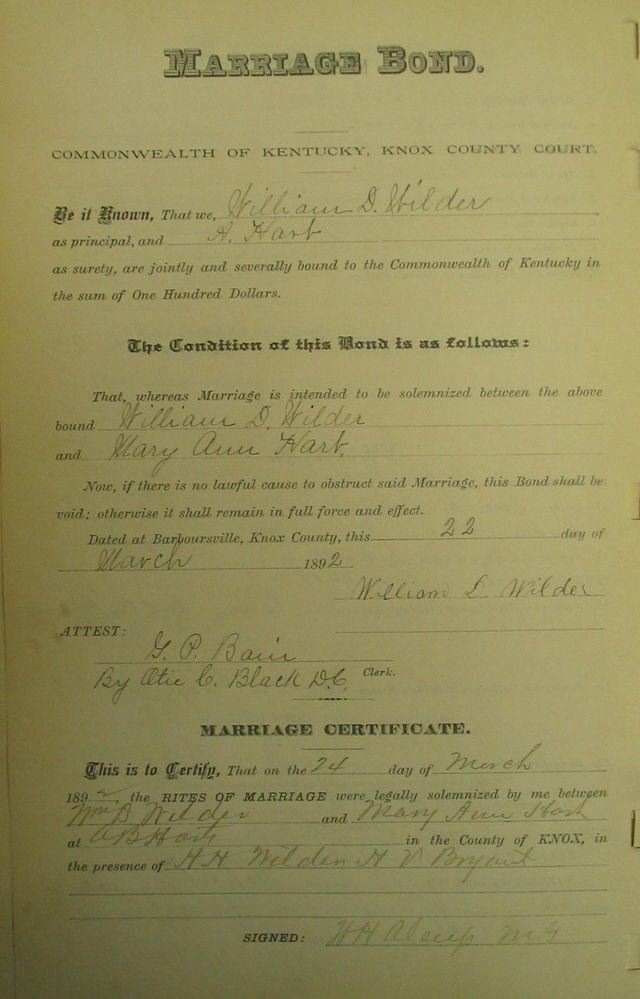 MARRIAGE BOND.
COMMONWEALTH OF KENTUCKY, KNOX COUNTY COURT.
Be it Known, That we, William D. Wilder
as principal, and A. Hart
as surety, are jointly and severally bound to the Commonwealth of Kentucky in
the sum of One Hundred Dollars.
The Condition of this Bond is as follows:
That, whereas Marriage is intended to be solemnized between the above
bound William D. Wilder
and Mary Ann Hart.
Now, if there is no lawful cause to obstruct said Marriage, this Bond shall be
void; otherwise it shall remain in full force and effect.
Dated at Barboursville, Knox County, this 22 day of
March 1892
William D Wilder
ATTEST:
G. P. Bain
By C. Black D.C. Clerk.
MARRIAGE CERTIFICATE.
This is to Certify, That on the 24 day of March
1892, the RITES OF MARRIAGE were legally solemnized by me between
Wm D Wilder and Mary Ann Hart
at Hart in the County of KNOX, in
the presence of H H Wilder H V Bryant
SIGNED: W H MG